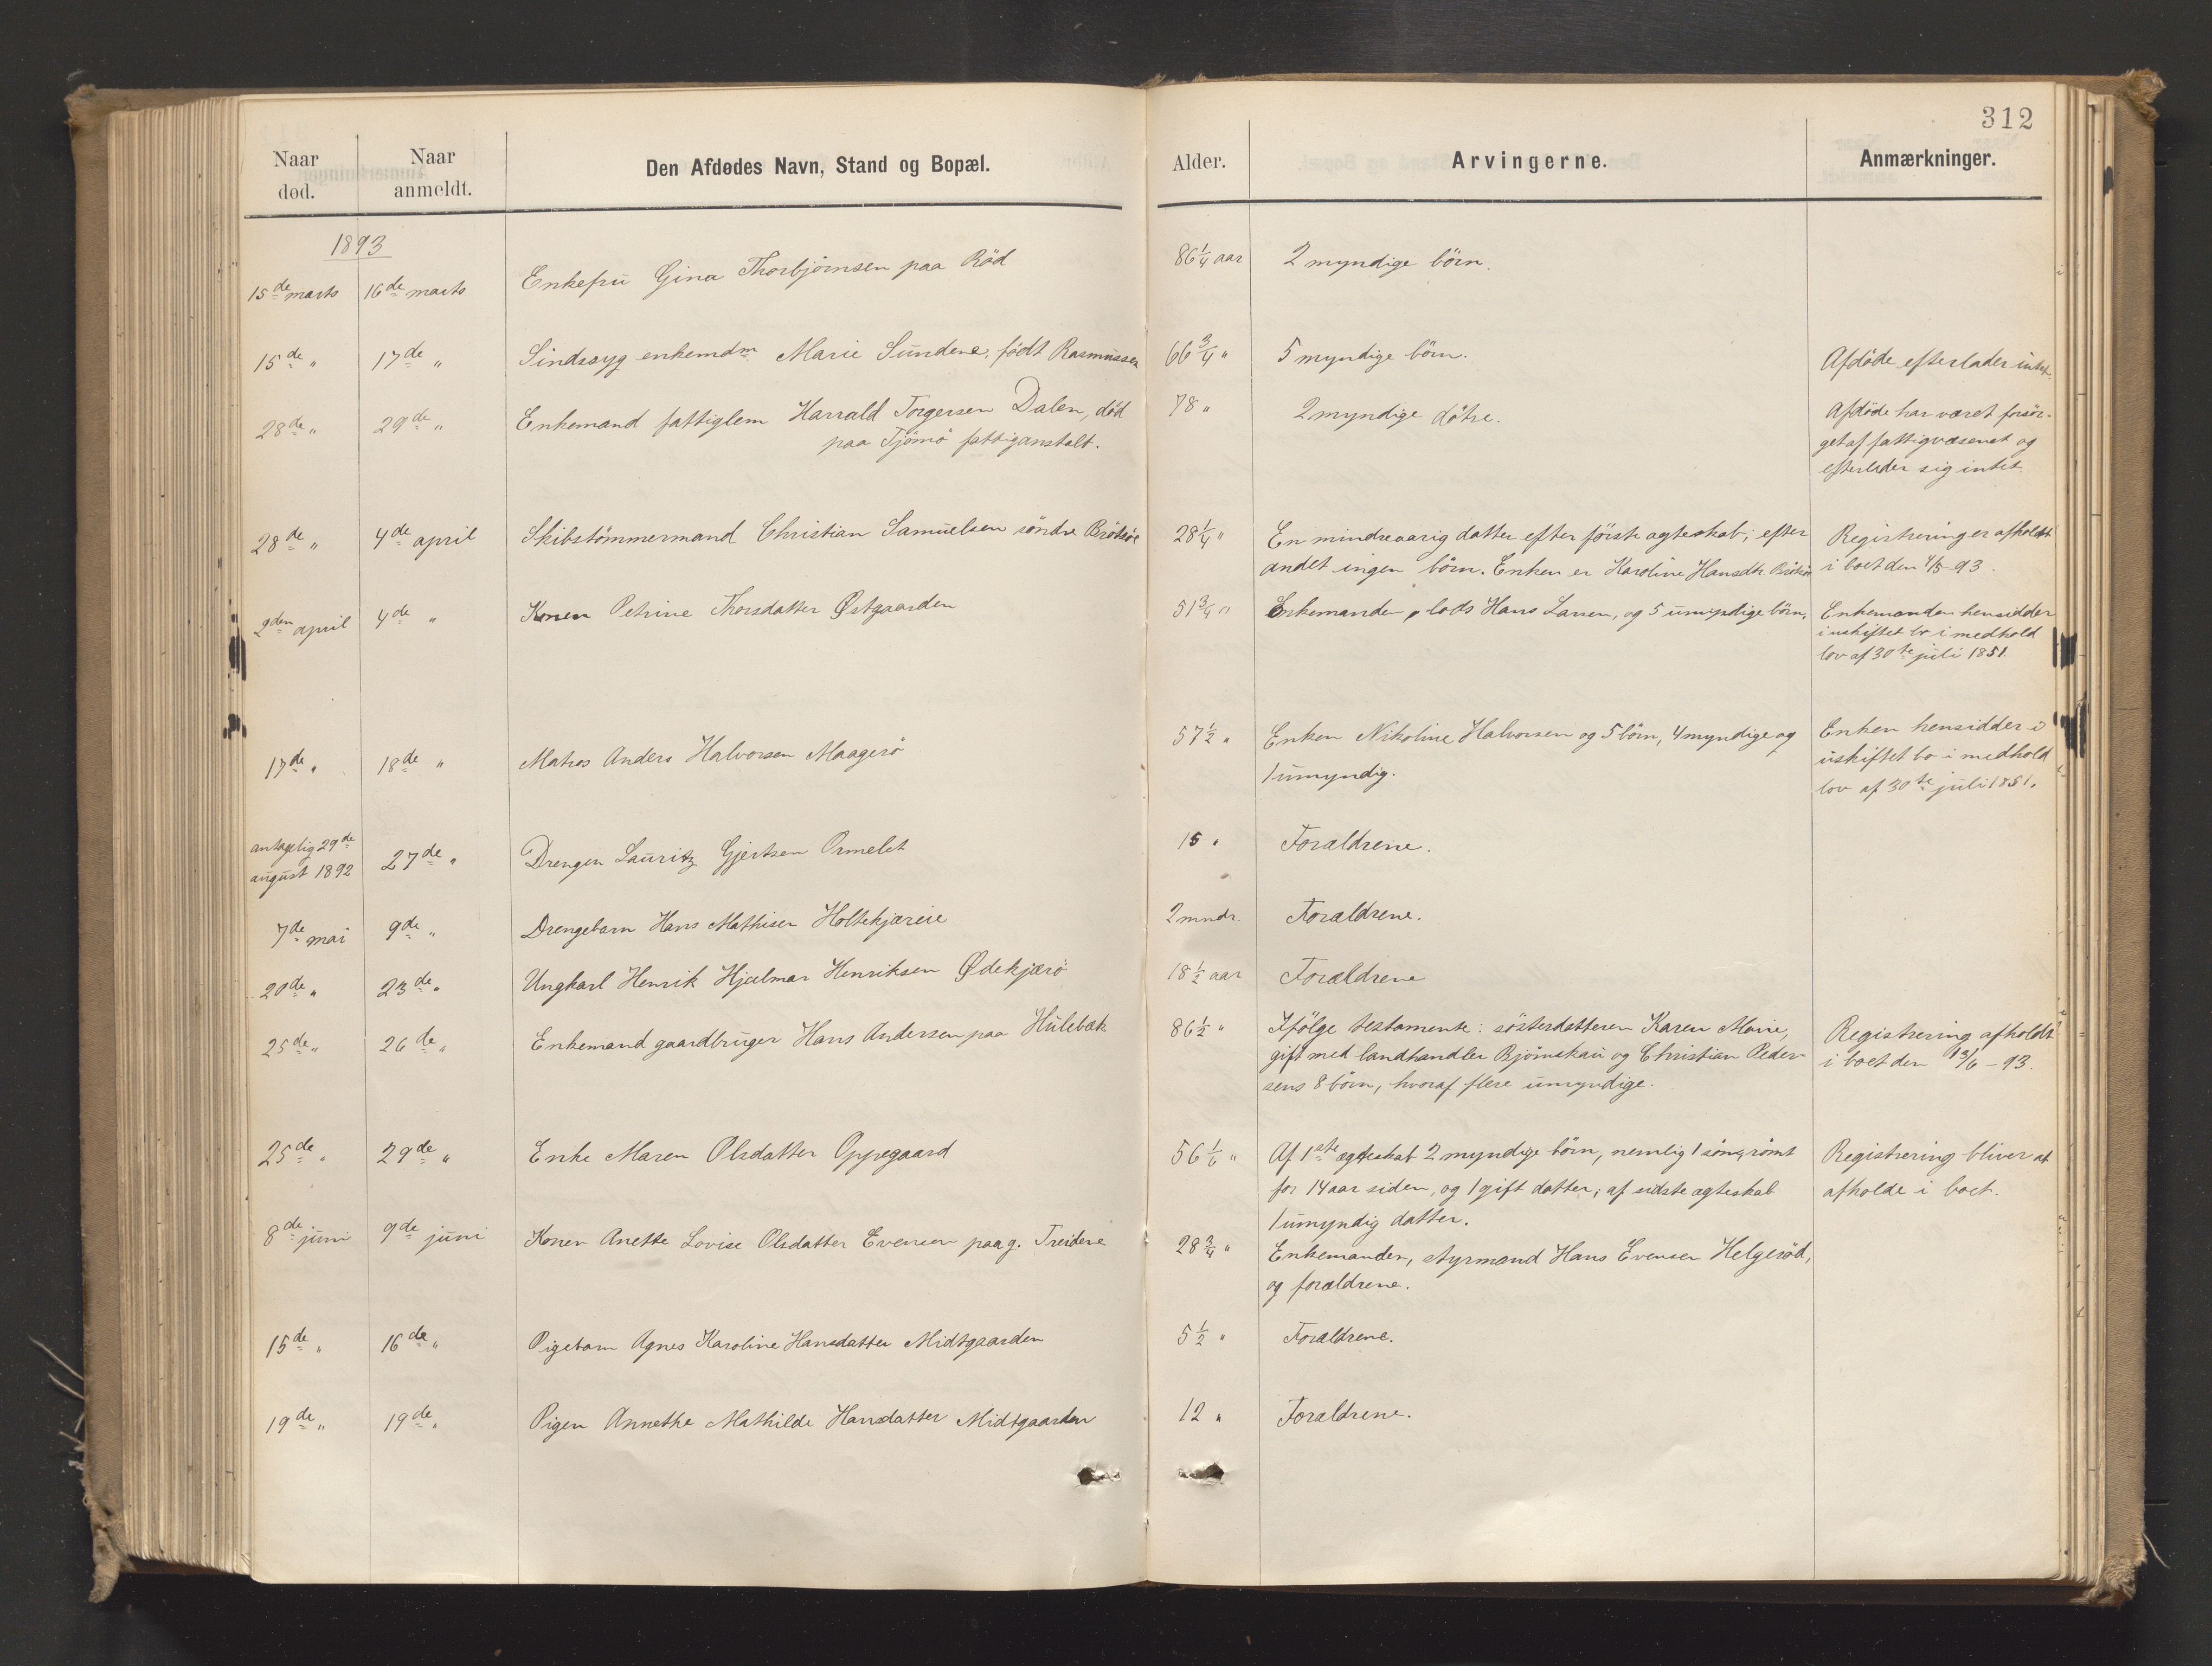 312
Naar død.
Naar anmeldt.
Den Afdødes Navn, Stand og Bopæl.
Alder.
Arvingerne.
Anmærkninger.
1893
15de marts 16de marts Enkefru Gina Thorbjörnsen paa Röd 86 1/4 aar 2 myndige börn.
15de " 17de " Sindssyg enkemdm Marie Sundene, födt Rasmussen 66 3/4 " 5 myndige börn. Afdöde efterlader intet.
28de " 29de " Enkemand fattiglem Harrald Torgersen Dalen, död 78 " 2 myndige dötre. Afdöde har været forsör-
paa Tjömö fattiganstalt. get af fattigvæsenet og
efterlader sig intet.
28de " 4de april Skibstömmermand Christian Samuelsen söndre Brötsöe 28 1/4 " En mindreaarig datter efter förste ægteskab; efter Registrering er afholdt
andet ingen börn. Enken er Karoline Hansdtr. Brötsöe i boet den 4/5 93.
2den april 4de " Konen Petrine Thorsdatter Østgaarden 51 3/4 " Enkemanden, lods Hans Larsen, og 5 umyndige börn. Enkemanden hensidder
i uskiftet bo i medhold
lov af 30te juli 1851.
17de " 18de " Matros Anders Halvorsen Maagerö 57 1/2 " Enken Nikoline Halvorsen og 5 börn, 4 myndige og Enken hensidder i
1 umyndig. uskiftet bo i medhold
lov af 30te juli 1851.
antagelig 29de
august 1892 27de " Drengen Lauritz Gjertsen Ormelet 15 " Forældrene.
7de mai 9de " Drengebarn Hans Mathisen Holtekjæreie 2 mndr. Forældrene.
20de " 23de " Ungkarl Henrik Hjalmar Henriksen Ødekjærö 18 1/2 aar Forældrene
25de " 26de " Enkemand gaardbruger Hans Andersen paa Hulebæk 86 1/2 " Ifölge testamente: sösterdatteren Karen Marie, Registrering afholdt
gift med landhandler Björnskau og Christian Peder- i boet den 13/6 - 93.
sens 8 börn, hvoraf flere umyndige.
25de " 29de " Enke Maren Olsdatter Oppegaard 56 1/6 " Af 1ste ægteskab 2 myndige börn, nemlig 1 sön, römt Registrering bliver at
for 14 aar siden, og 1 gift datter; af sidste ægteskab afholde i boet.
1 umyndig datter.
8de juni 9de juni Konen Anette Lovise Olsdatter Evensen paa g. Treidene 28 3/4 " Enkemanden, styrmand Hans Evensen Helgeröd,
og forældrene.
15de " 16de " Pigebarn Agnes Karoline Hansdatter Midtgaarden 5 1/2 " Forældrene.
19de " 19de " Pigen Annethe Mathilde Hansdatter Midtgaarden 12 " Forældrene.